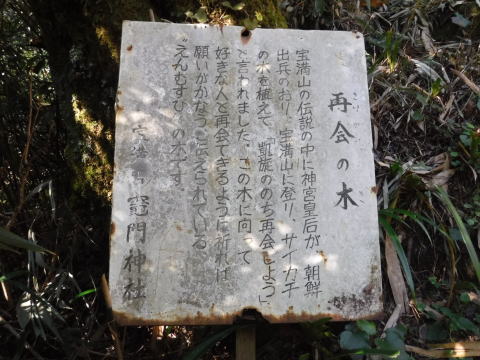 再会の木
宝満山の伝説の中に神宮皇后が、朝鮮
出兵のおり、宝満山に登り、サイカチ
の木を植えて、凱旋ののち再会しよう」
と言われました。この木に向って
好きな人と再会できるように祈れば
願いがかなうと伝えられている
"えんむすび"の木です。
宝満山 竈門神社